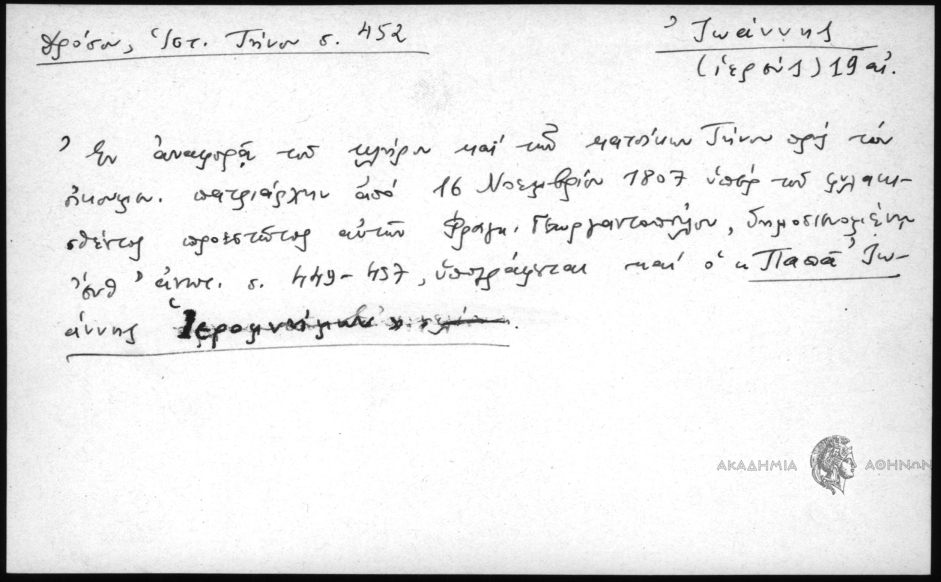 Δρόσου, Ἱστ. Τήνου σ. 452
Ἰωάννης
(ἱερεύς) 19 αἰ.
Ἐν ἀναφορᾷ τοῦ κλήρου καὶ τῶν κατοίκων Τήνου πρὸς τὸν
οἰκουμ. πατριάρχην ἀπὸ 16 Νοεμβρίου 1807 ὑπὲρ τοῦ φυλακι-
σθέντος προεστῶτος αὐτῶν Φραγκ. Γεωργαντοπούλου, δημοσιευομένῃ
ἔνθ' ἀνωτ. σ. 449-457, ὑπογράφεται καὶ ὁ « Παπᾶ Ἰω-
άννης
ΑΚΑΔΗΜΙΑ ΑΘΗΝΩΝ